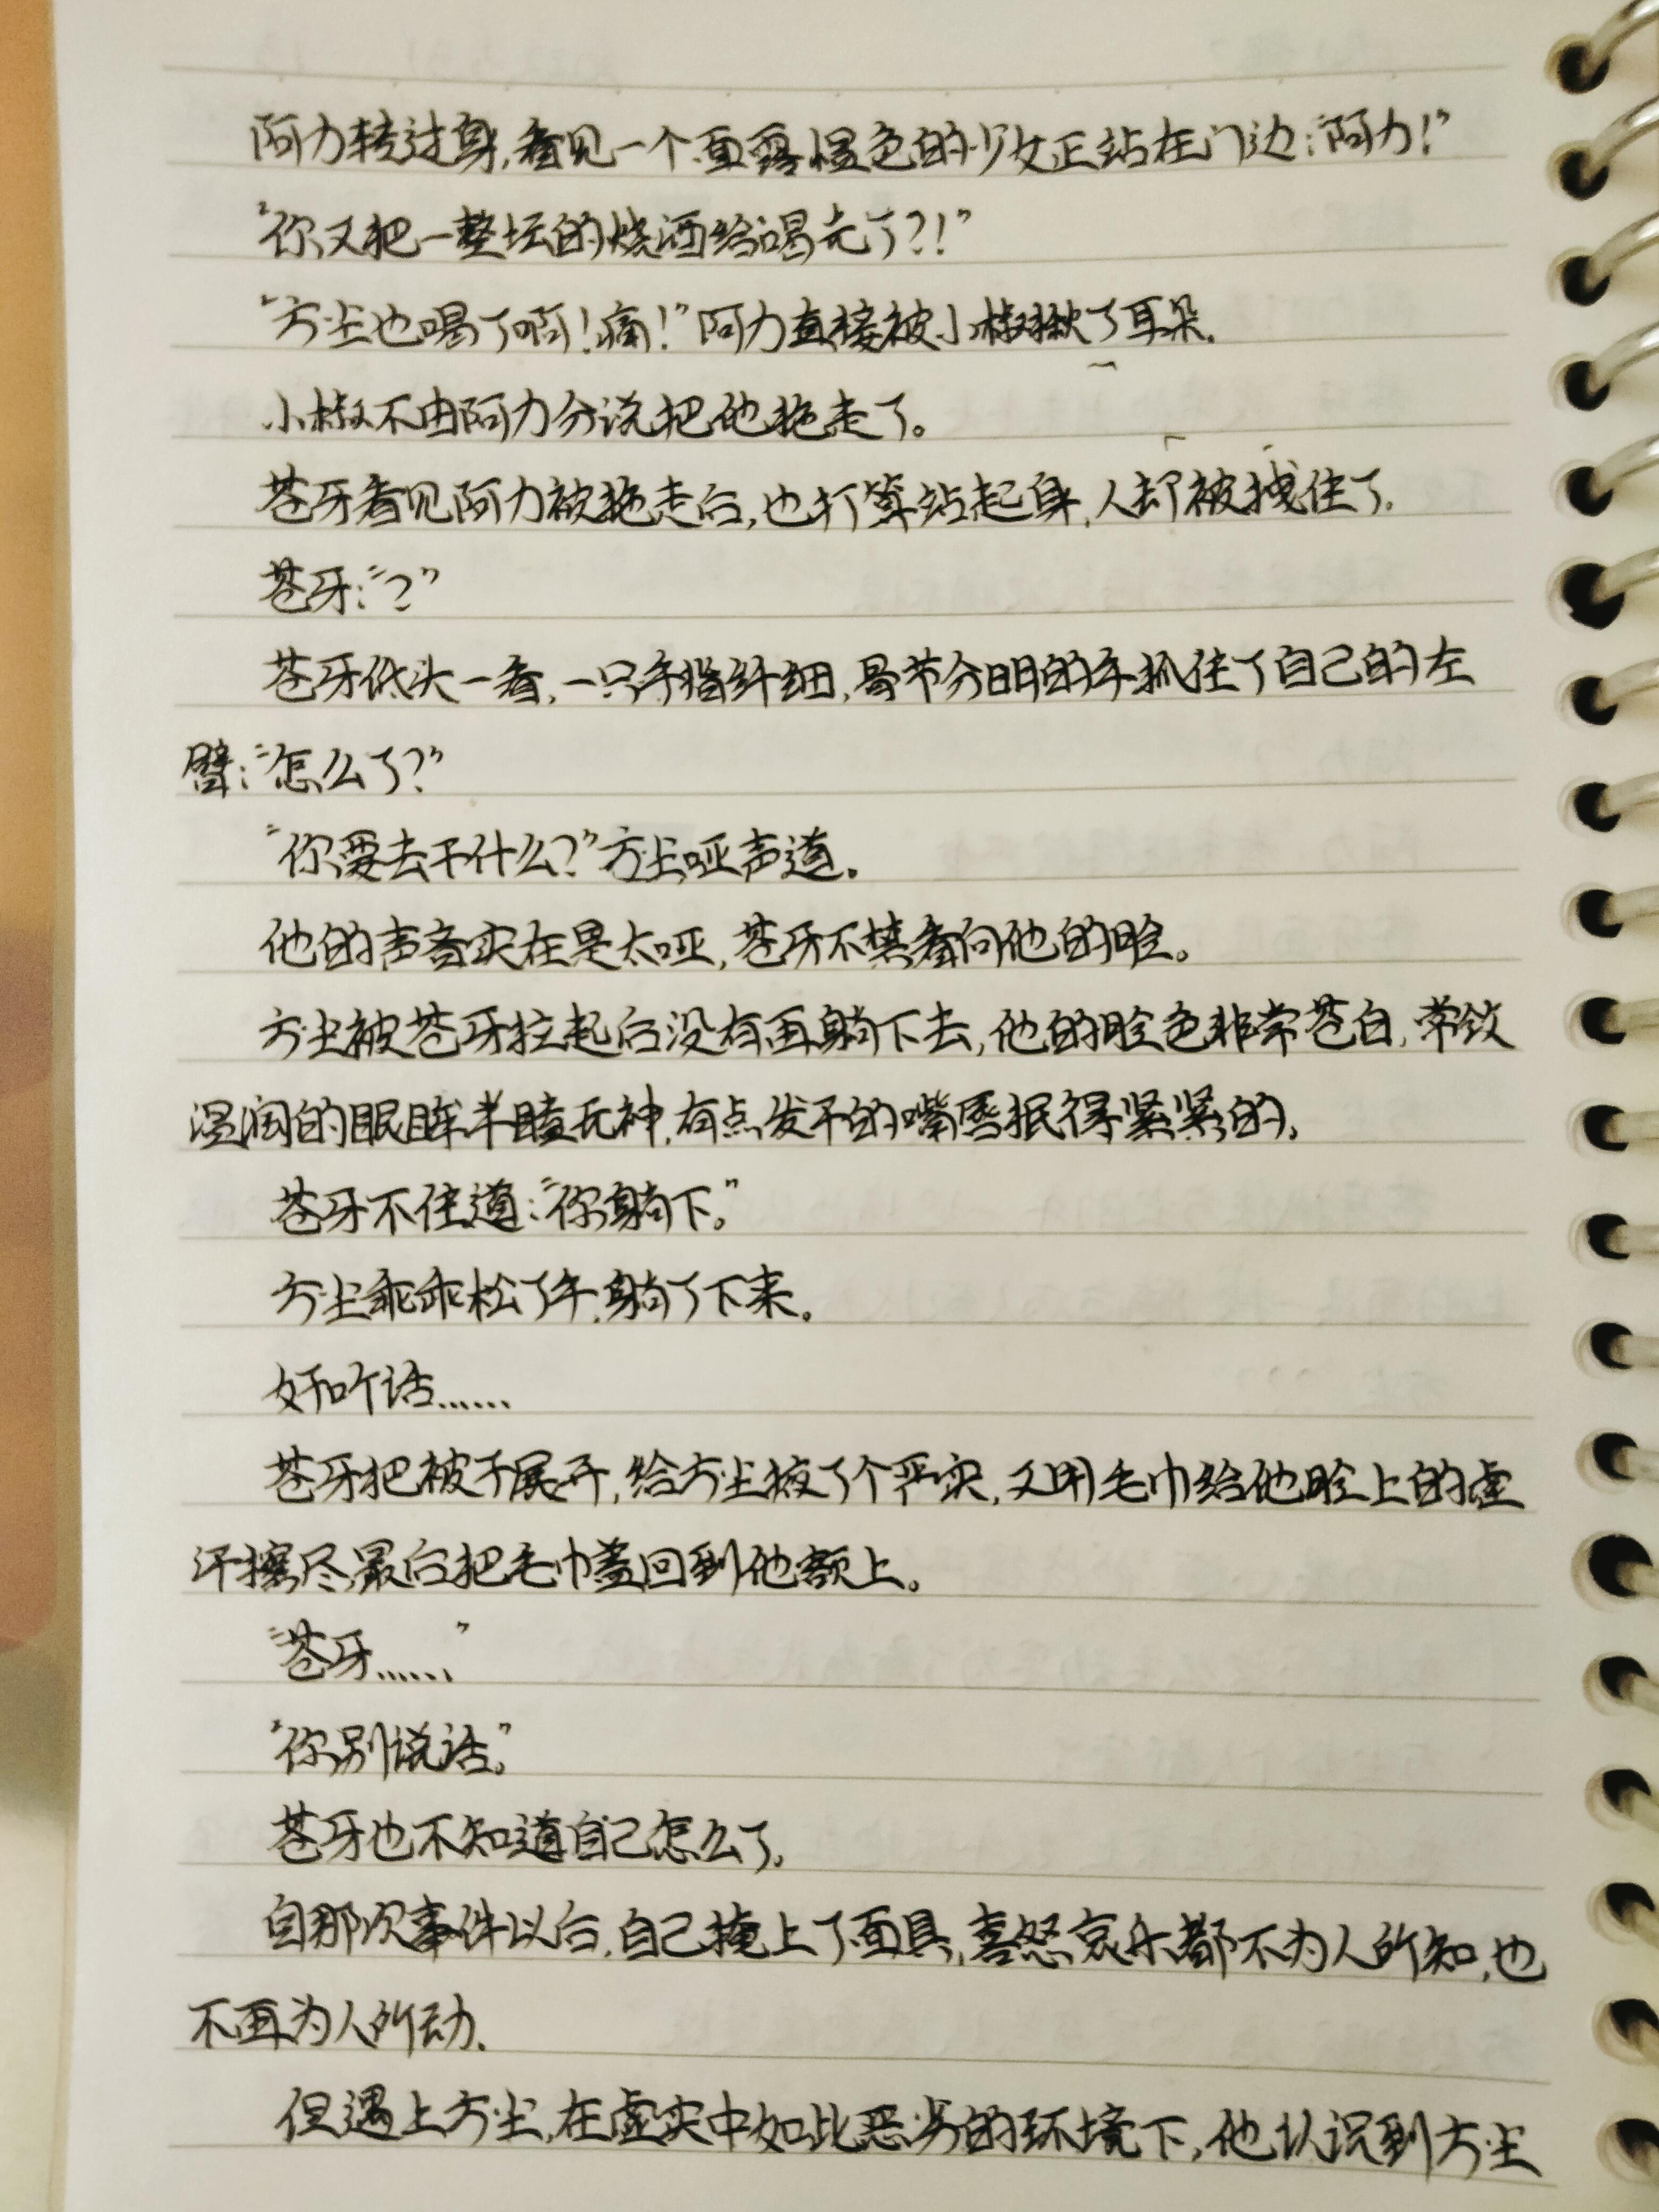 阿力转过身,看见一个面露愠色的少女正站在门边:“阿力!”
“你又把一整坛的烧酒给喝光了?!”
“方尘也喝了啊!痛!”阿力直接被小椒揪了耳朵.
小椒不由阿力分说把他拖走了。
苍牙看见阿力被拖走后,也打算站起身,人却被拽住了.
苍牙:“?”
苍牙低头一看,一只手指纤细,骨节分明的手抓住了自己的左
臂:“怎么了?”
“你要去干什么?”方尘哑声道。
他的声音实在是太哑,苍牙不禁看向他的脸。
方尘被苍牙拉起后没有再躺下去,他的脸色非常苍白,常敛
湿润的眼眸半瞌无神,有点发干的嘴唇抿得紧紧的.
苍牙不住道:“你躺下。”
方尘乖乖松了手,躺了下来。
好听话......
苍牙把被子展开,给方尘掖了个严实,又用毛巾给他脸上的虚
汗擦尽,最后把毛巾盖回到他额上。
“苍牙......”
“你别说话。”
苍牙也不知道自己怎么了.
自那次事件以后,自己掩上了面具,喜怒哀乐都不为人所知,也
不再为人所动.
但遇上方尘,在虚实中如此恶劣的环境下,他认识到方尘